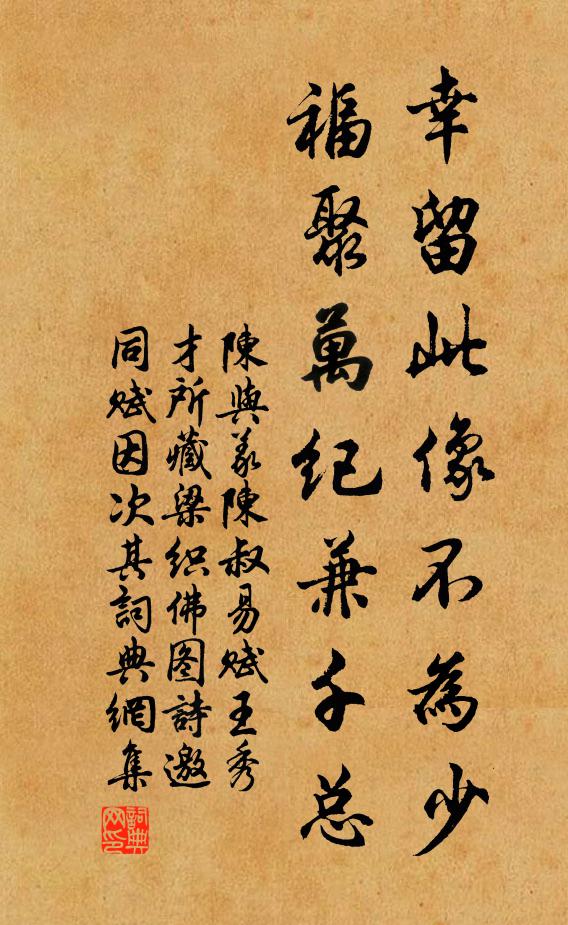 幸留此像不為少
福聚萬纪兼千总
陳與義陳叔易赋王秀
才所藏梁织佛图詩邀
同赋因次其詞典網集
詞典网印